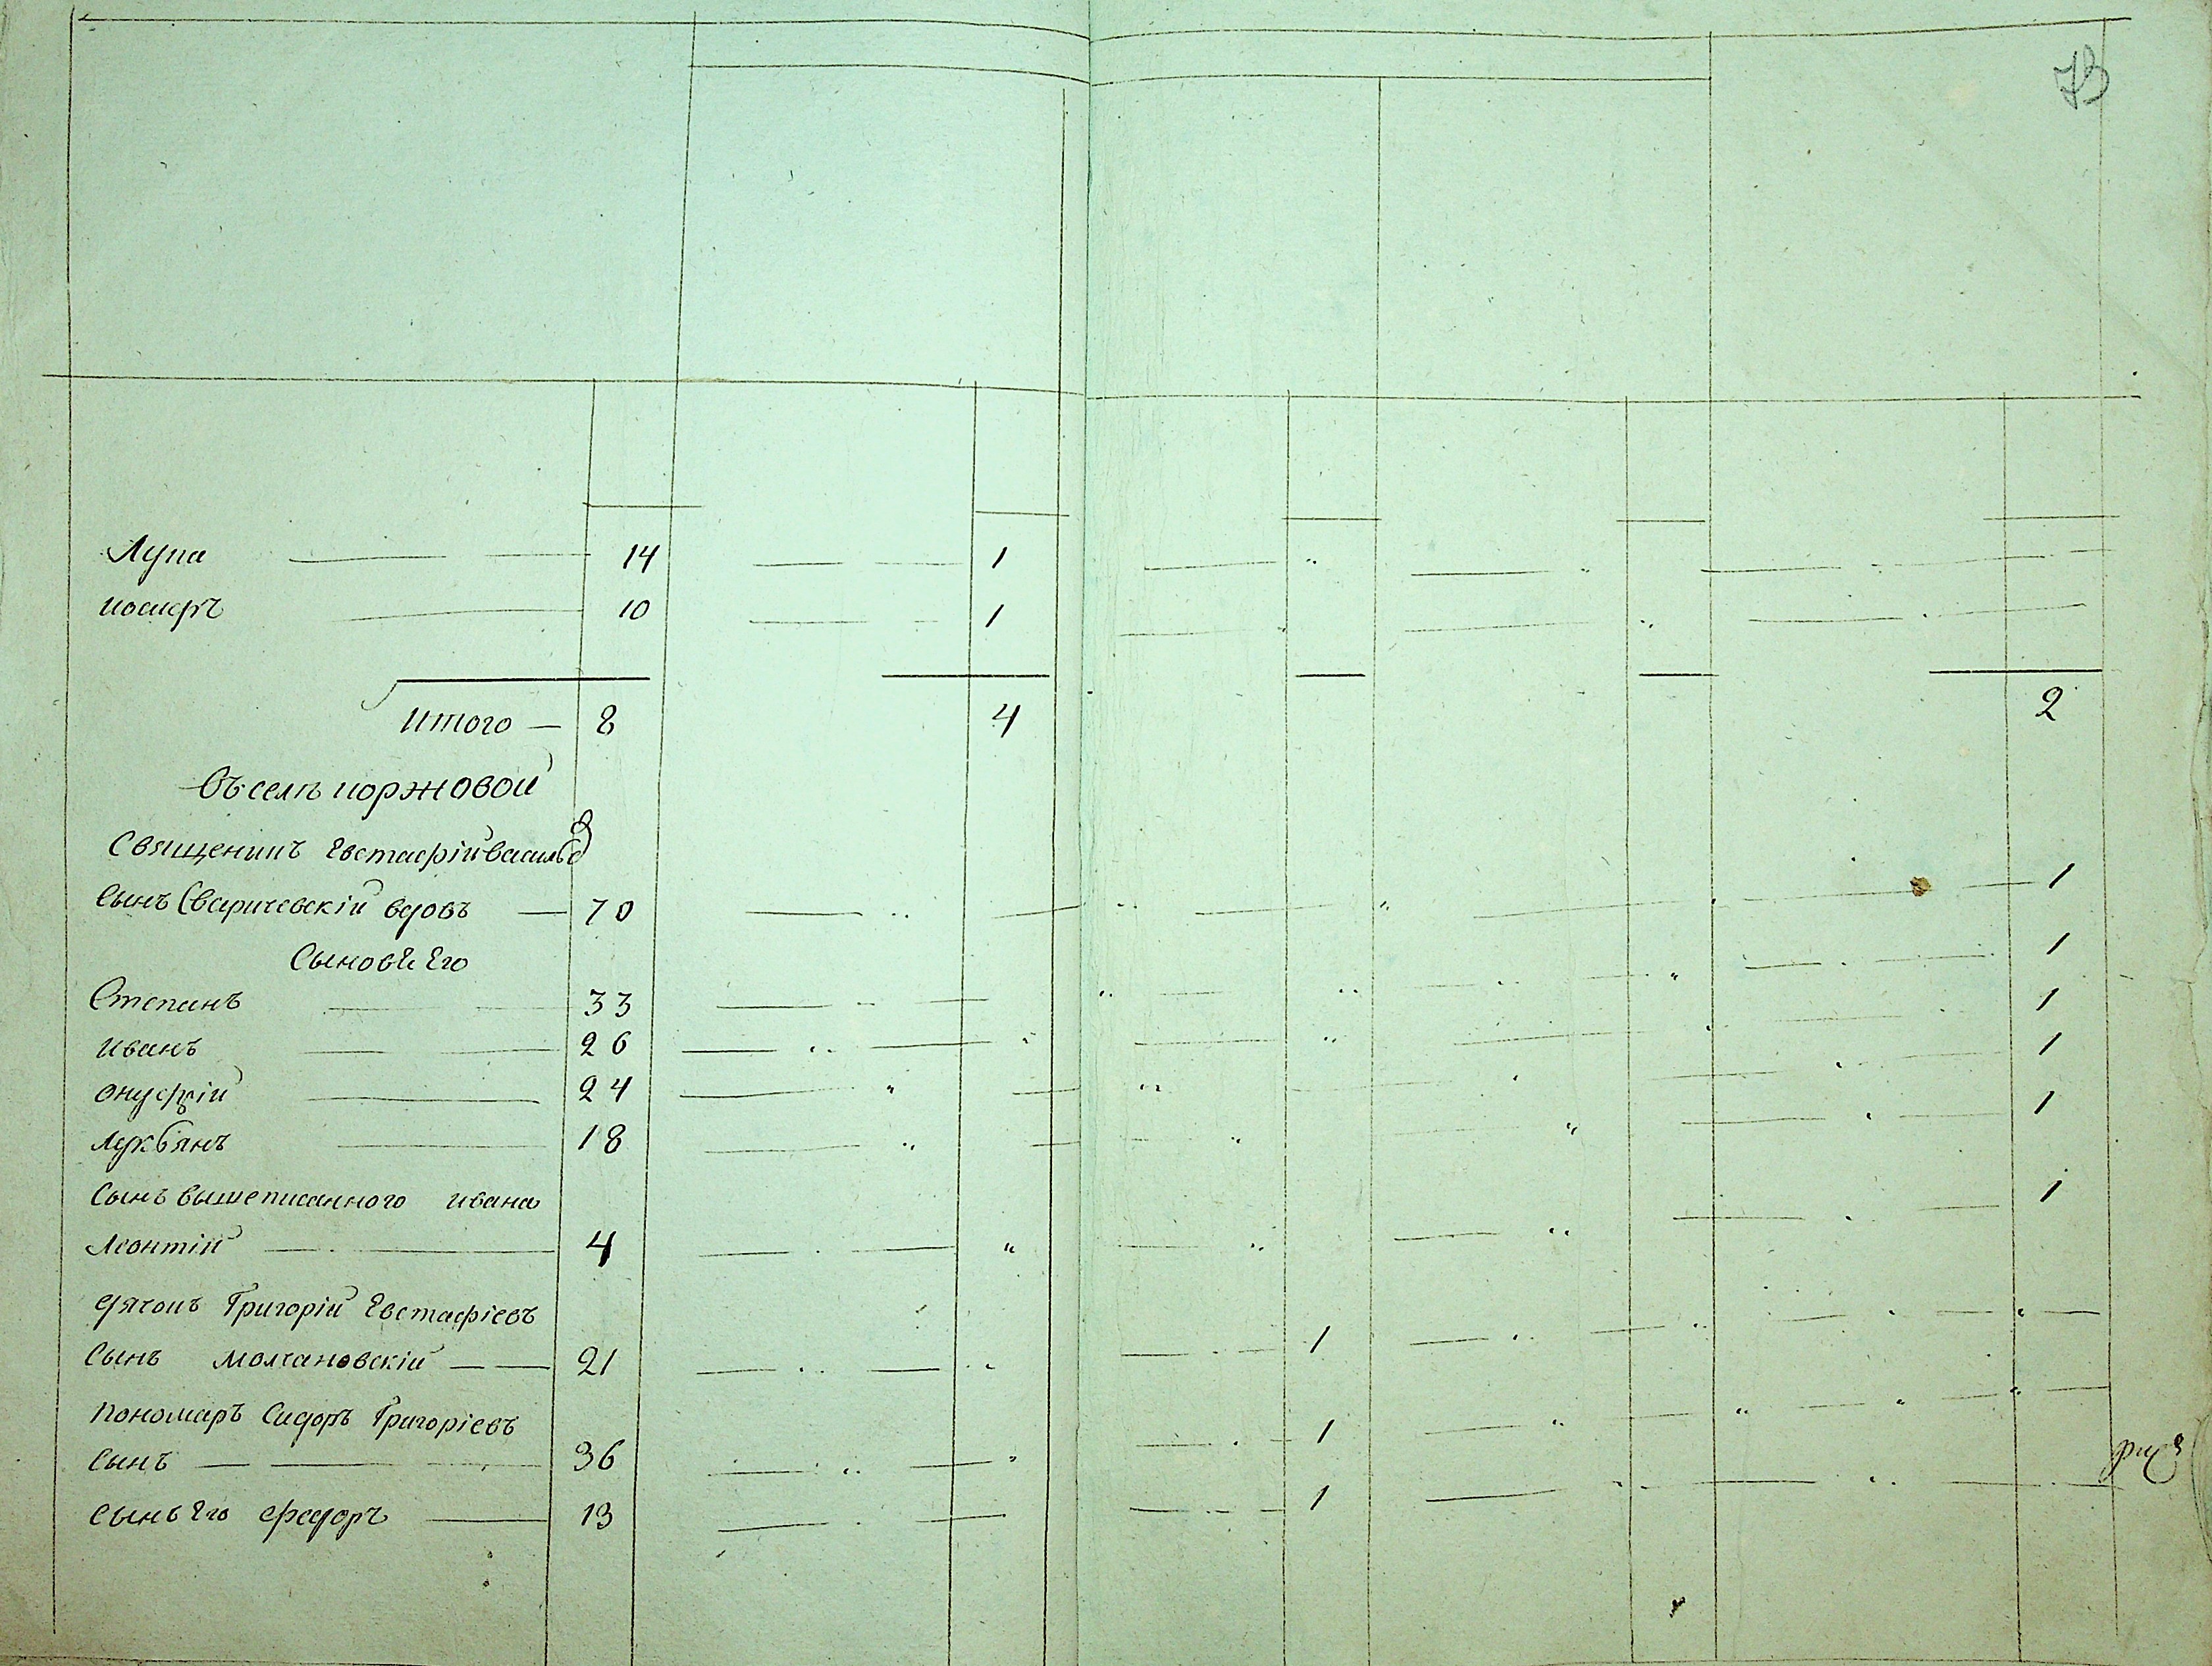 73
Лупа — — 14 — — 1 — " — " — . —
иосифъ — 10 — — 1 — " — " — . —
Итого — 8 4 2
Въ селѣ коржовой
Священникъ Евстафій василье
Сынъ Сваричевскій вдовъ — 70 — " — 1
Сыновѣ Его
Степанъ — 33 — 1
иванъ — 26 — 1
онуфрій — 24 — 1
лукьянъ — 18 — 1
Сынъ вышеписанного ивана
Леонтій — 4 — 1
дячокъ Григорій Евстафіевъ
Сынъ Молчановскій — 21 — 1
пономаръ Сидоръ Григоріевъ
Сынъ — 36 — 1
Сынъ Его федоръ — 13 — 1